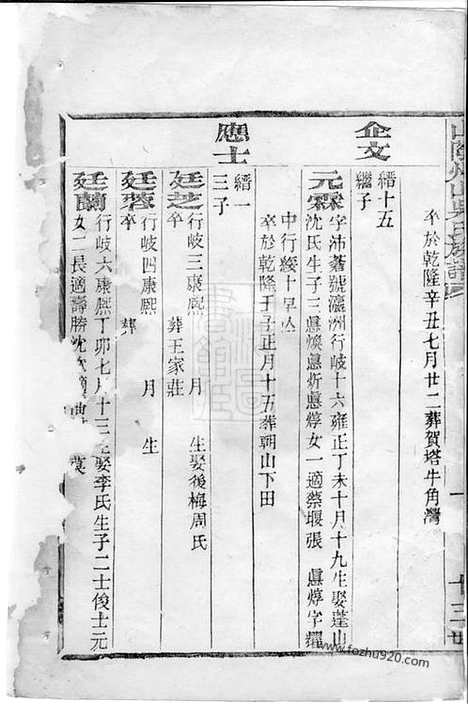 山陰州山吳氏族譜
十三世
卒於乾隆辛丑七月廿二葬賀塔牛角灣
企文
縉十五
繼子
元霖
字沛蒼號瀛洲行岐十六雍正丁未十月十九生娶蓬山
沈氏生子三慐煥慐炘慐焞女一適蔡堰張 慐焞字耀
中行綬十早亡
卒於乾隆壬子正月十五葬朝山下田
應士
縉一
三子
廷芝
行岐三康熙 月 生娶後梅周氏
卒 葬王家莊
行岐四康熙 月 生
卒 葬
廷蘭
行岐六康熙丁卯七月十三生娶李氏生子二士俊士元
女二長適壽勝沈次適曲
www.fozhu920.com